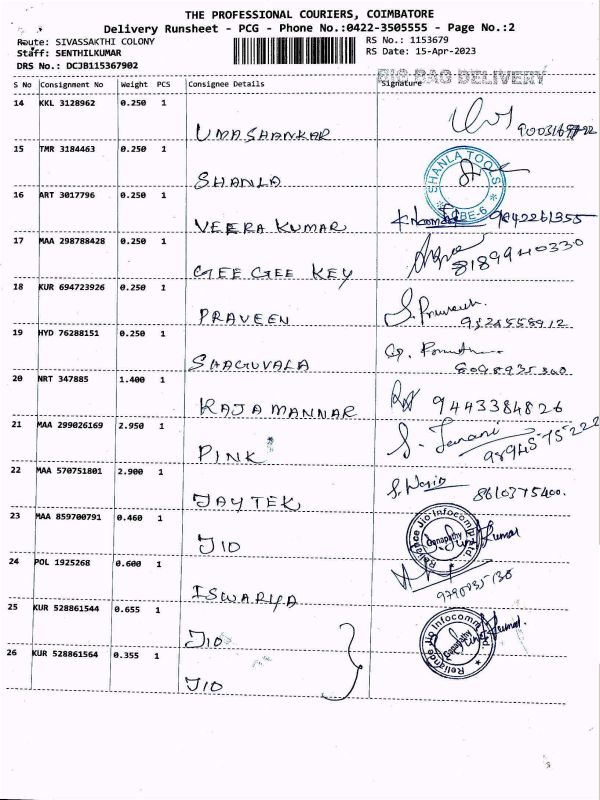 THE PROFESSIONAL COURIERS, COIMBATORE
Delivery Runsheet - PCG - Phone No.:0422-3505555 - Page No.:2
Route: SIVASSAKTHI COLONY RS No.: 1153679
Staff: SENTHILKUMAR RS Date: 15-Apr-2023
DRS No.: DCJB115367902
BIG BAG DELIVERY
S No Consignment No Weight PCS Consignee Details Signature
14 KKL 3128962 0.250 1
UMASHANKAR
15 TMR 3184463 0.250 1
SHANLA TOOLS
SHANLA
CBE-6
16 ART 3017796 0.250 1
VEERA KUMAR 9842261355
17 MAA 298788428 0.250 1
GEE GEE KEY 8189940330
18 KUR 694723926 0.250 1
PRAVEEN
19 HYD 76288151 0.250 1
SHAGUVALA
20 NRT 347885 1.400 1
RAJAMANNAR 9443384826
21 MAA 299026169 2.950 1
PINK S. Janani 9894575222
22 MAA 570751801 2.900 1
JAYTEK 8610375400.
23 MAA 859700791 0.460 1
JIO Reliance Jio Infocomm Ltd. Ganapathy
24 POL 1925268 0.600 1
ISWARYA
25 KUR 528861544 0.655 1
JIO Reliance Jio Infocomm Ltd. Ganapathy
26 KUR 528861564 0.355 1
JIO